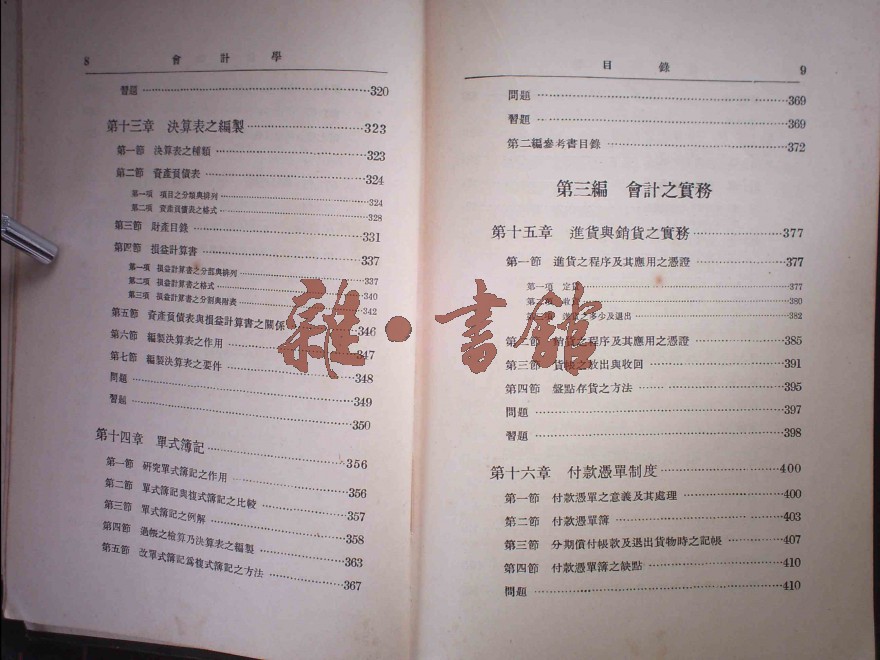 8 會計學
習題 320
第十三章 決算表之編製 323
第一節 決算表之種類 323
第二節 資產負債表 324
第一項 項目之分類與排列 324
第二項 資產負債表之格式 328
第三節 財產目錄 331
第四節 損益計算書 337
第一項 損益計算書之分部與排列 337
第二項 損益計算書之格式 340
第三項 損益計算書之分割與附表 342
第五節 資產負債表與損益計算書之關係 346
第六節 編製決算表之作用 347
第七節 編製決算表之要件 348
問題 349
習題 350
第十四章 單式簿記 356
第一節 研究單式簿記之作用 356
第二節 單式簿記與複式簿記之比較 357
第三節 單式簿記之例解 358
第四節 過帳之檢算乃決算表之編製 363
第五節 改單式簿記爲複式簿記之方法 367
目錄 9
問題 369
習題 369
第二編參考書目錄 372
第三編 會計之實務
第十五章 進貨與銷貨之實務 377
第一節 進貨之程序及其應用之憑證 377
第一項 定 377
第二項 收 380
第三項 之多少及退出 382
第二節 銷貨之程序及其應用之憑證 385
第三節 貨 之放出與收回 391
第四節 盤點存貨之方法 395
問題 397
習題 398
第十六章 付款憑單制度 400
第一節 付款憑單之意義及其處理 400
第二節 付款憑單簿 403
第三節 分期償付帳款及退出貨物時之記帳 407
第四節 付款憑單簿之缺點 410
問題 410
雜·書館